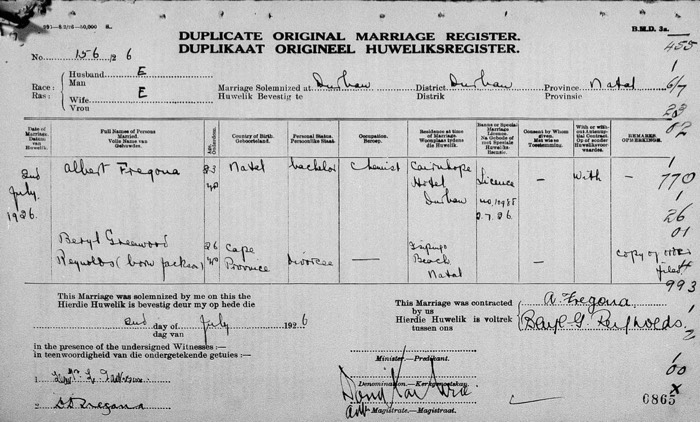 DUPLICATE ORIGINAL MARRIAGE REGISTER.
DUPLIKAAT ORIGINEEL HUWELIKSREGISTER.
B.M.D. 3a.
No. 156/26
Race: Ras: Husband Man E
Wife Vrou E
Marriage Solemnized at Durban District Durban Province Natal
Huwelik Bevestig te Distrik Provinsie
Date of Marriage. Datum van Huwelik.
Full Names of Persons Married. Volle Name van Gehuwdes.
Age. Ouderdom.
Country of Birth. Geboorteland.
Personal Status. Persoonlike Staat.
Occupation. Beroep.
Residence at time of Marriage. Woonplaas tydens die Huwelik.
Banns or Special Marriage Licence. Na Gebode of met Spesiale Huweliks-lisensie.
Consent by Whom given. Met wie se Toestemming.
With or without Antenuptial Contract. Met of sonder Huweliksvoorwaardes.
REMARKS. OPMERKINGS.
2nd July 1926.
Albert Fregona
23 yr
Natal
bachelor
Chemist
Hotel Durban
Licence no. 10985 2.7.26
—
With
—
Beryl Greenwood Reynolds (born Jackson)
26 yr
Cape Province
divorcee
—
Isipingo Beach Natal
—
copy of order filed
455
1
6/7
23
02
770
1
26
01
4
993
1
2
1
00
x
This Marriage was solemnized by me on this the
Hierdie Huwelik is bevestig deur my op hede die
2nd day of July 1926
dag van
in the presence of the undersigned Witnesses:—
in teenwoordigheid van die ondergetekende getuies:—
1
2 Fregona
This Marriage was contracted by us
Hierdie Huwelik is voltrek tussen ons
A. Fregona
Beryl G. Reynolds
Minister—Predikant.
Denomination—Kerkgenootskap.
Magistrate—Magistraat.
0865